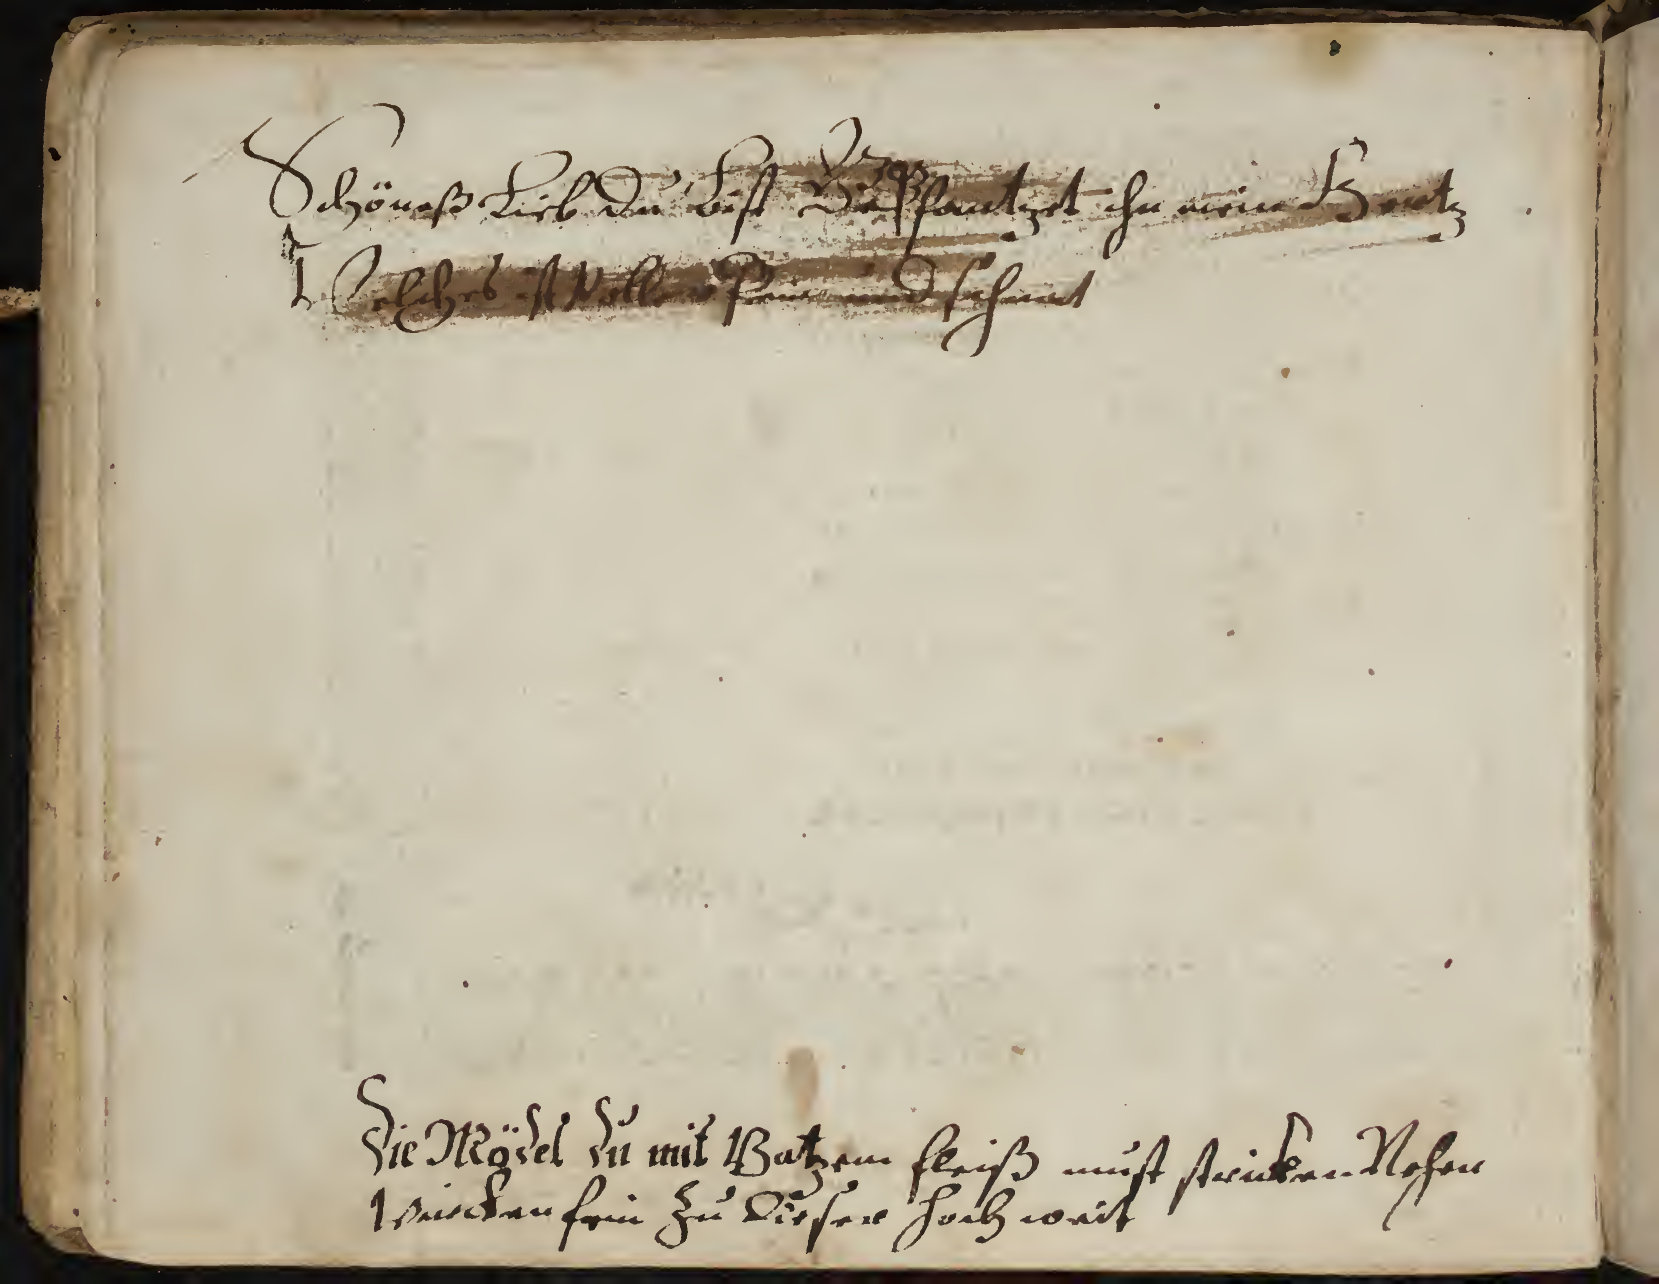 Schöneß Lieb du bist Vepflantzet ihn mein Hertz
Welches ist Voller Pein und schmert
Die Mödel du mit gantzem fleiß must stricken Nehen
Wircken fein zu dieser hochzeit